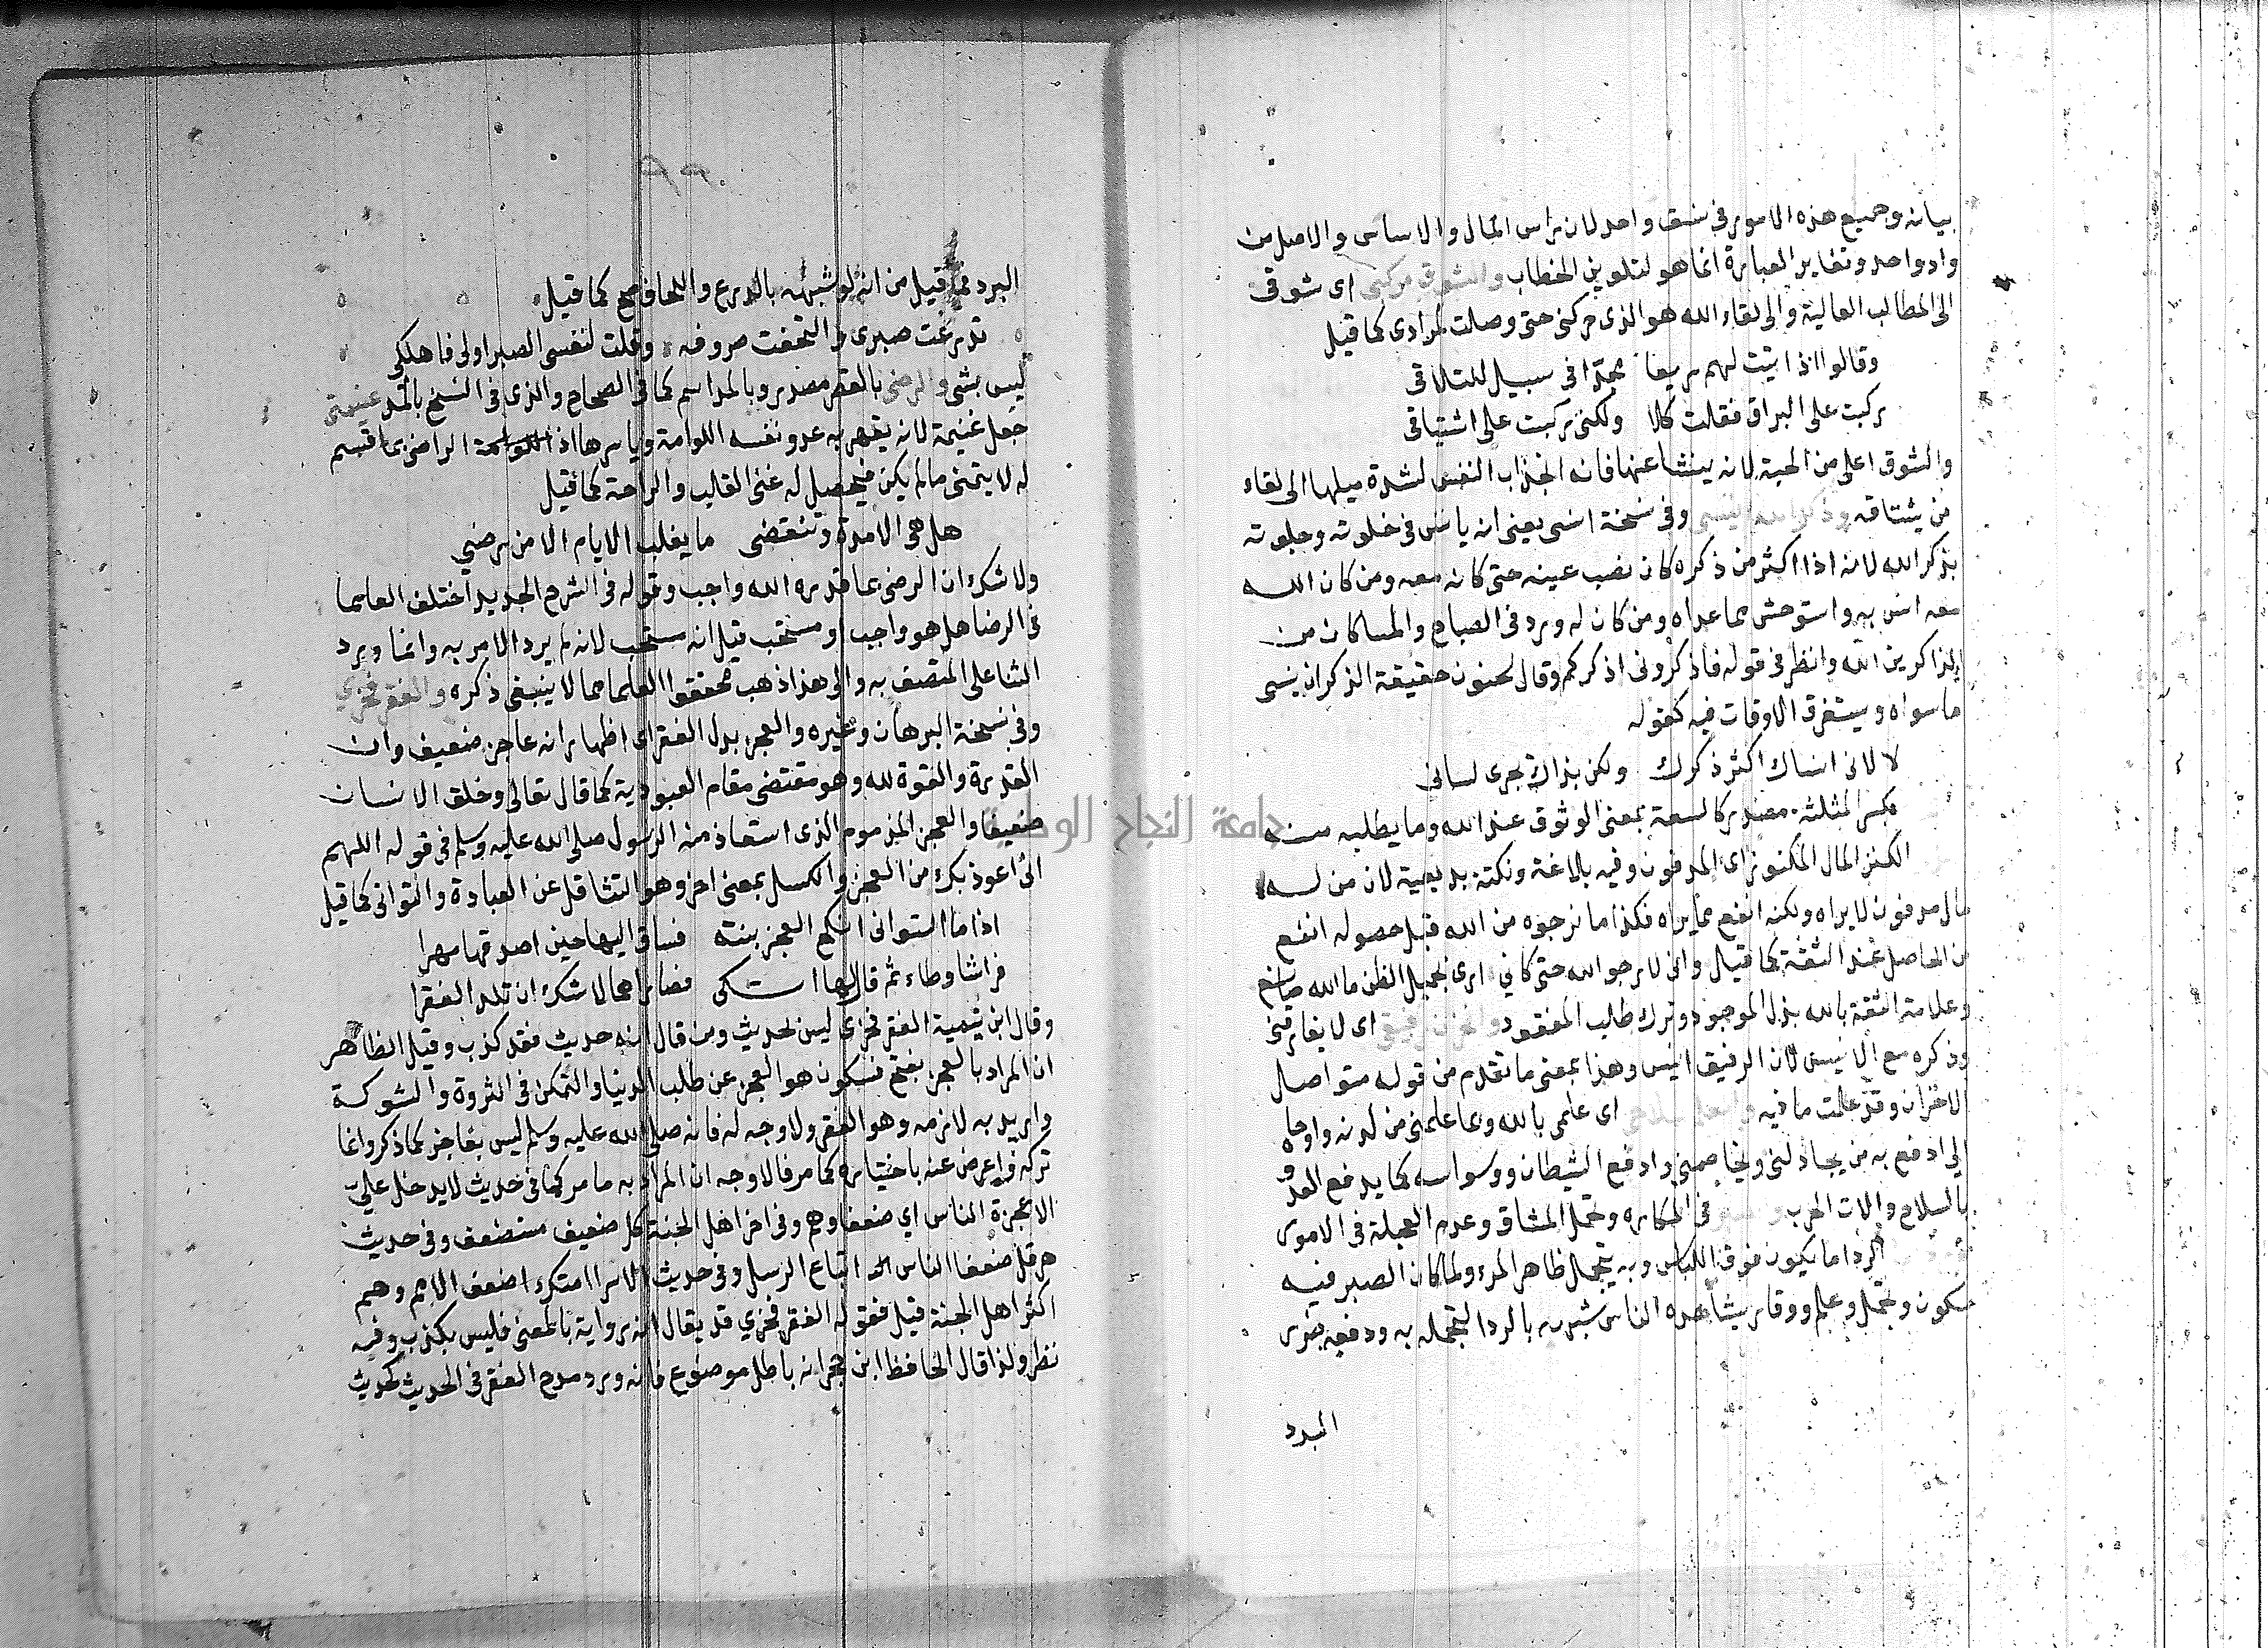 بيانه وجميع هذه الامور في نسق واحد لان راس المال والاساس والاصل من
واد واحد وتغاير العبارة انما هو لتلوين الخطاب والشوق مركبى اى شوقى
الى المطالب العالية والى لقاء الله هو الذى حركنى حتى وصلت لمرادى كما قيل
وقالوا اذا اتيت لهم سريعا مجدا فى سبيل للتلاقى
ركبت على البراق فقلت كلا ولكنى ركبت على اشتياقى
والشوق اعلى من المحبة لانه ينشا عنها فانه انجذاب النفس لشدة ميلها الى لقاء
من يشتاقه وذكر الله انيسى وفى نسخة انسى يعنى انه يانس فى خلوته وجلوته
بذكر الله لانه اذا اكثر من ذكره كان نصب عينه حتى كانه معه ومن كان الله
معه انس به واستوحش مما عداه ومن كان له ورد فى الصباح والمساكان من
الذاكرين الله وانظر فى قوله فاذكرونى اذكركم وقال سحنون حقيقة الذكر ان ينسى
ما سواه ويستغرق الاوقات فيه كقوله
لا لانى انساك اكثر ذكرك ولكن بذاك يجرى لسانى
بكسر المثلثة مصدر كالسعة بمعنى الوثوق عند الله وما يطلبه منه
الكنز المال المكنوز اى المدفون وفيه بلاغة ونكتة بديعية لان من له
مال مدفون لا يراه ولكنه انفع مما يراه فكذا ما نرجوه من الله قبل حصوله انفع
من الحاصل عند الثقة كما قيل وانى لارجو الله حتى كانى ارى بجميل الظن ما الله صانع
وعلامة الثقة بالله بذل الموجود وترك طلب المفقود والحزن رفيقى اى لا يفارقنى
وذكره مع الانيس لان الرفيق انيس وهذا بمعنى ما تقدم من قوله متواصل
الاحزان وقد علمت ما فيه والعلم سلاحى اى علمى بالله وبما علمنى من لدنه واوحاه
الى ادفع به من يجادلنى ويخاصمنى وادفع الشيطان ووسواسه كما يدفع العدو
بالسلاح والات الحرب فى المكاره وتحمل المشاق وعدم العجلة فى الامور
الردا ما يكون فوق اللباس وبه يتجمل ظاهر المرء ولما كان الصبر فيه
سكون وتحمل وعلم ووقار يشاهده الناس شبهه بالردا لتجمله به ودفعه ضرر
البرد
٩٩
البرد فما قيل من انه لو شبهه بالدرع واللحاف صح كما قيل
تدرعت صبرى والتحفت صروفه وقلت لنفسى الصبر اولى فاهلكى
ليس بشى والرضى بالقصر مصدر وبالمد اسم كما فى الصحاح والذى فى النسخ بالمد غنيمتى
جعل غنيمة لانه يقهر به عدو نفسه اللوامة وياسرها اذ الراضى بما قسم
له لا يتمنى ما لم يكن فيحصل له غنى القلب والراحة كما قيل
هل هى الا مدة وتنقضى ما يغلب الايام الا من رضي
ولا شك ان الرضى بما قدره الله واجب وقوله فى الشرح الجديد اختلف العلما
فى الرضا هل هو واجب او مستحب قيل انه مستحب لانه لم يرد الامر به وانما ورد
الثنا على المتصف به والى هذا ذهب محققوا العلما مما لا ينبغى ذكره والفقر فخري
وفى نسخة البرهان وغيره والعجز بدل الفقر اى اظهار انه عاجز ضعيف وان
القدرة والقوة لله وهو مقتضى مقام العبودية كما قال تعالى وخلق الانسان
ضعيفا والعجز المذموم الذى استعاذ منه الرسول صلى الله عليه وسلم فى قوله اللهم
انى اعوذ بك من العجز والكسل بمعنى اخر وهو التثاقل عن العبادة والتوانى كما قيل
اذا ما التوانى انكح العجز بنته فساق اليها حين اصدقها مهرا
فراشا وطاء ثم قال لها اتكى فصارا هما لا شك ان تلد الفقرا
وقال ابن تيمية الفقر فخرى ليس بحديث ومن قال انه حديث فقد كذب وقيل الظاهر
ان المراد بالعجز بفتح فسكون هو العجز عن طلب الدنيا والتمكن فى الثروة والشوكة
واريد به لازمه وهو الفقر ولا وجه له فانه صلى الله عليه وسلم ليس بفاخر كما ذكر وانما
تركه واعرض عنه باختياره كما مر فالاوجه ان المراد به ما مر كما فى حديث لا يدخل علي
الا عجزة الناس اي ضعفاوهم وفى اخر اهل الجنة كل ضعيف مستضعف وفى حديث
هرقل ضعفا الناس اتباع الرسل وفى حديث الاسرا امتك اضعف الامم وهم
اكثر اهل الجنة قيل فقوله الفقر فخري قد يقال انه رواية بالمعنى فليس بكذب وفيه
نظر ولذا قال الحافظ ابن حجر انه باطل موضوع فانه ورد مدح الفقر فى الحديث كحديث
جامعة النجاح الوطنية